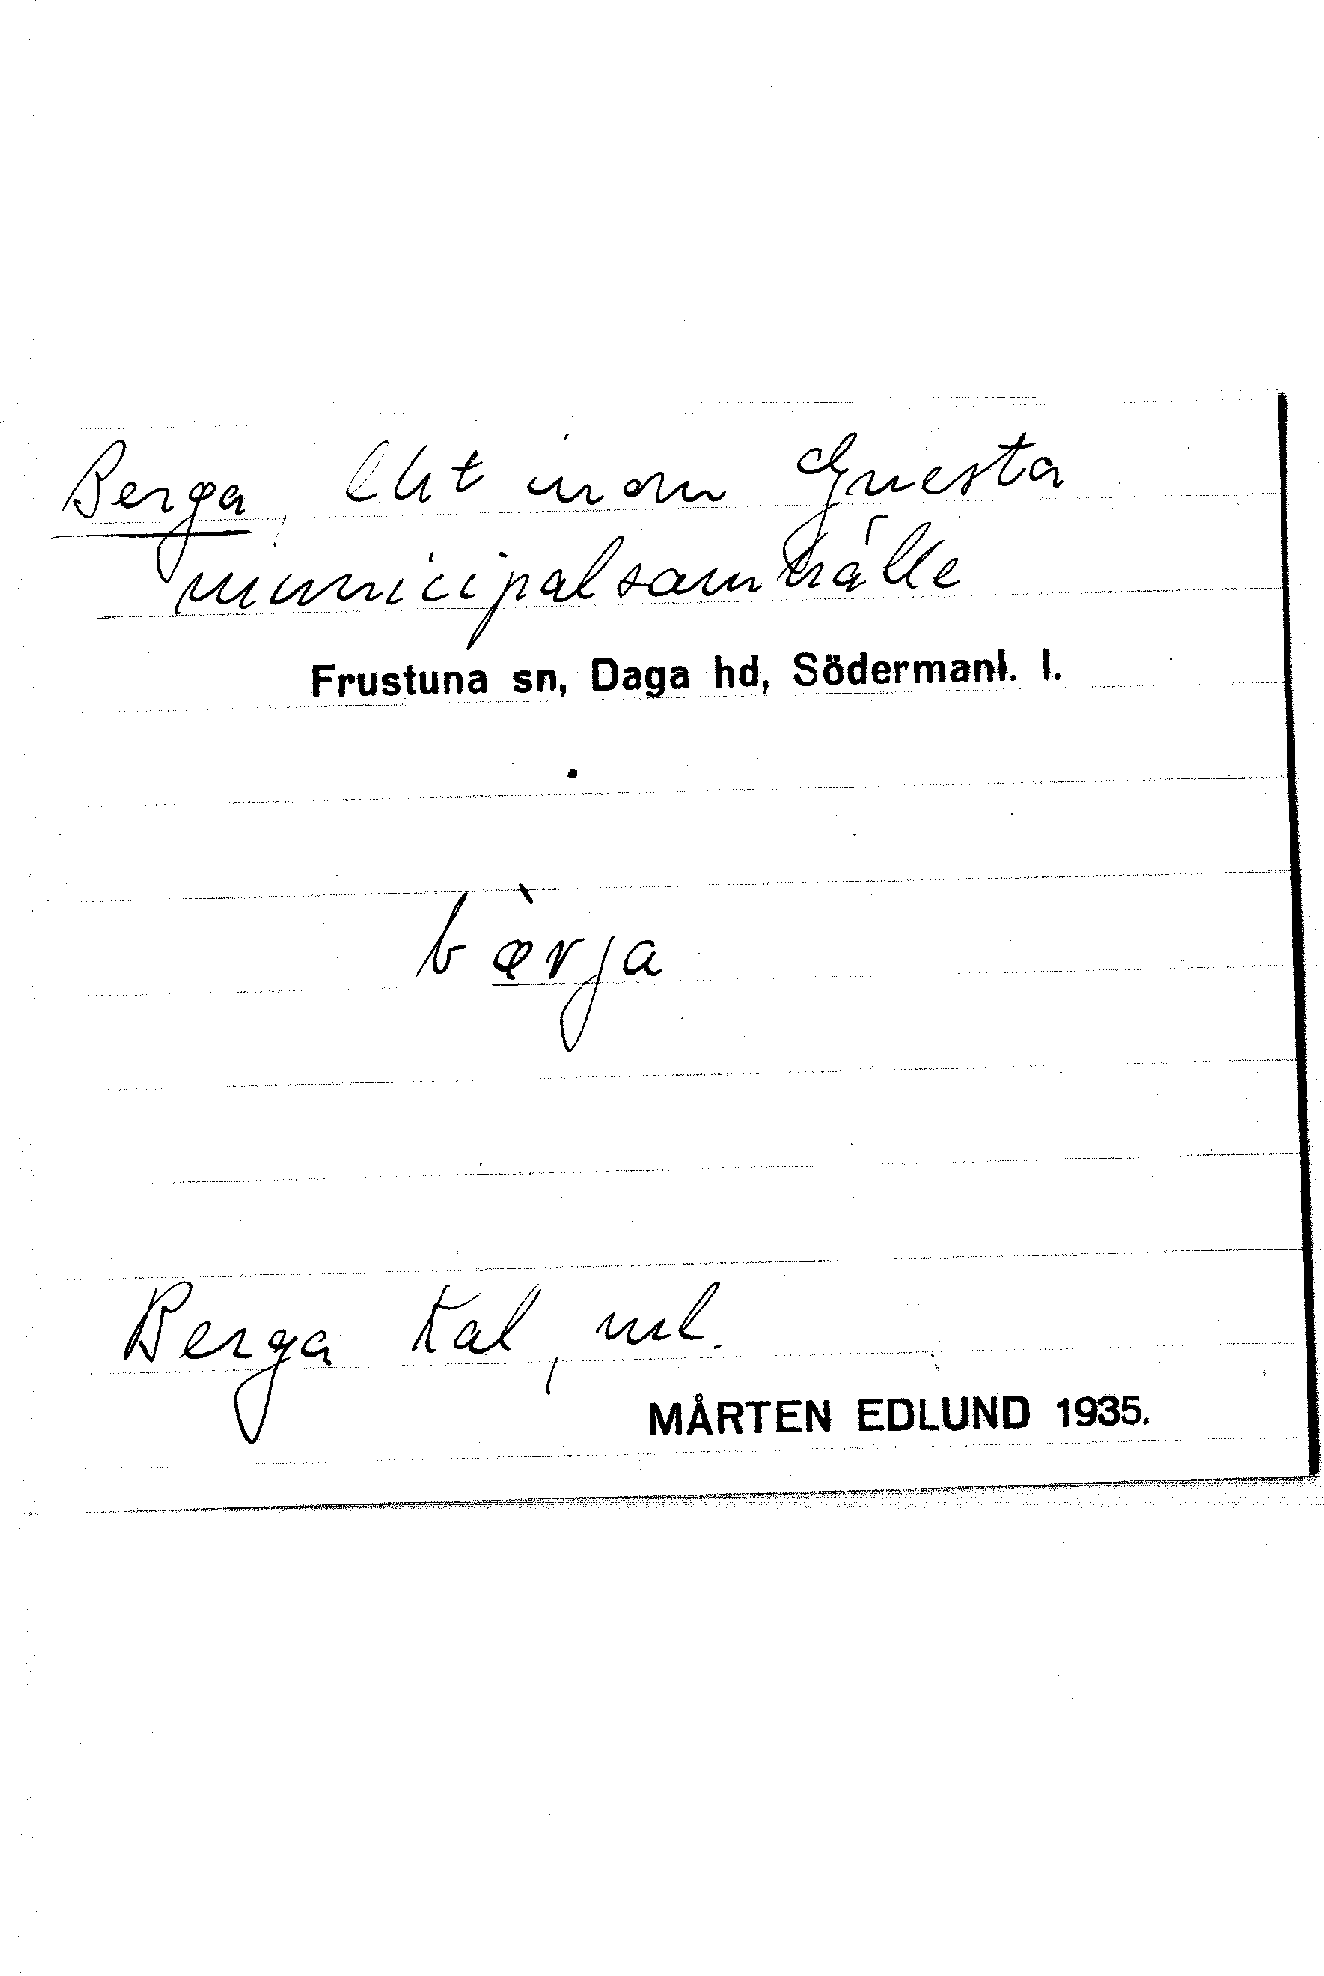 Berga, lht inom Gnesta
municipalsamhälle
Frustuna sn, Daga hd, Södermanl. l.
bæ̀rja
Berga Kal, ml.
MÅRTEN EDLUND 1935.